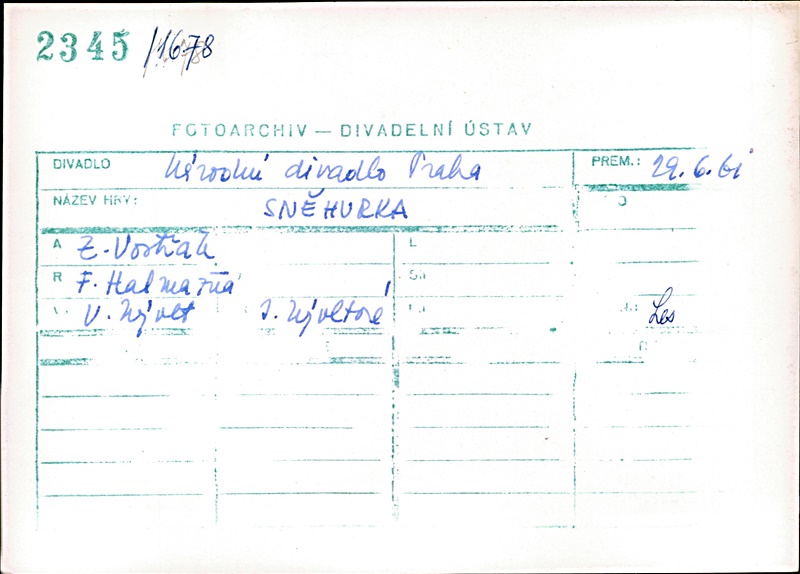 2345 /1678
FOTOARCHIV — DIVADELNÍ ÚSTAV
DIVADLO Národní divadlo Praha PREM.: 29.6.61
NÁZEV HRY: SNĚHURKA O
A Z. Vostřák L
R F. Halmazňa Sn
V. Nývlt J. Nývltové Les